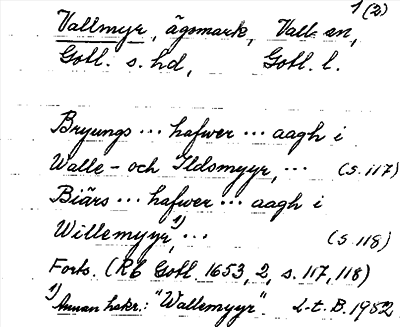 1 (2)
Vallmyr, ägomark, Vall- sn,
Gotl. s. hd, Gotl. l.
Bryungs ... hafwer ... aagh i
Walle- och Ildsmyyr, ... (s. 117)
Biärs ... hafwer ... aagh i
Willemyyr,1) ... (s. 118)
Forts. (RA Gotl. 1653, 2, s. 117, 118)
1) Annan hskr.: "Wallemyyr". L.t. B. 1952